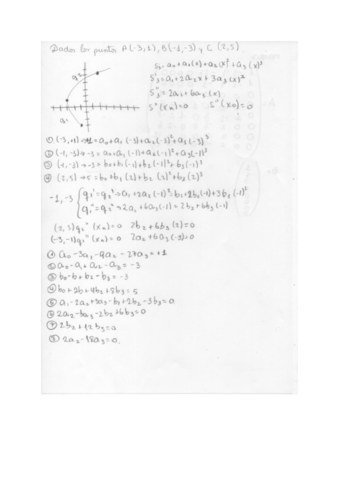 Dados los puntos A(-3,1), B(-1,-3) y C (2,5)
S₃ = a₀+a₁(x)+a₂(x)²+a₃(x)³
S'₃ = a₁+2a₂x+3a₃(x)²
S''₃ = 2a₂+6a₃(x)
S''(x₀)=0 S''(xₙ)=0
① (-3,+1) → 1 = a₀+a₁(-3)+a₂(-3)²+a₃(-3)³
② (-1,-3) → -3 = a₀+a₁(-1)+a₂(-1)²+a₃(-1)³
③ (-1,-3) → -3 = b₀+b₁(-1)+b₂(-1)²+b₃(-1)³
④ (2,5) → 5 = b₀+b₁(2)+b₂(2)²+b₃(2)³
-1,-3 { q₁' = q₂' → a₁+2a₂(-1)+3a₃(-1)² = b₁+2b₂(-1)+3b₃(-1)²
q₁'' = q₂'' → 2a₂+6a₃(-1) = 2b₂+6b₃(-1)
(2,5) q₂''(xₙ)=0 2b₂+6b₃(2)=0
(-3,-1) q₁''(x₀)=0 2a₂+6a₃(-3)=0
① a₀-3a₁+9a₂-27a₃=+1
② a₀-a₁+a₂-a₃=-3
③ b₀-b₁+b₂-b₃=-3
④ b₀+2b₁+4b₂+8b₃=5
⑤ a₁-2a₂+3a₃-b₁+2b₂-3b₃=0
⑥ 2a₂-6a₃-2b₂+6b₃=0
⑦ 2b₂+12b₃=0
⑧ 2a₂-18a₃=0